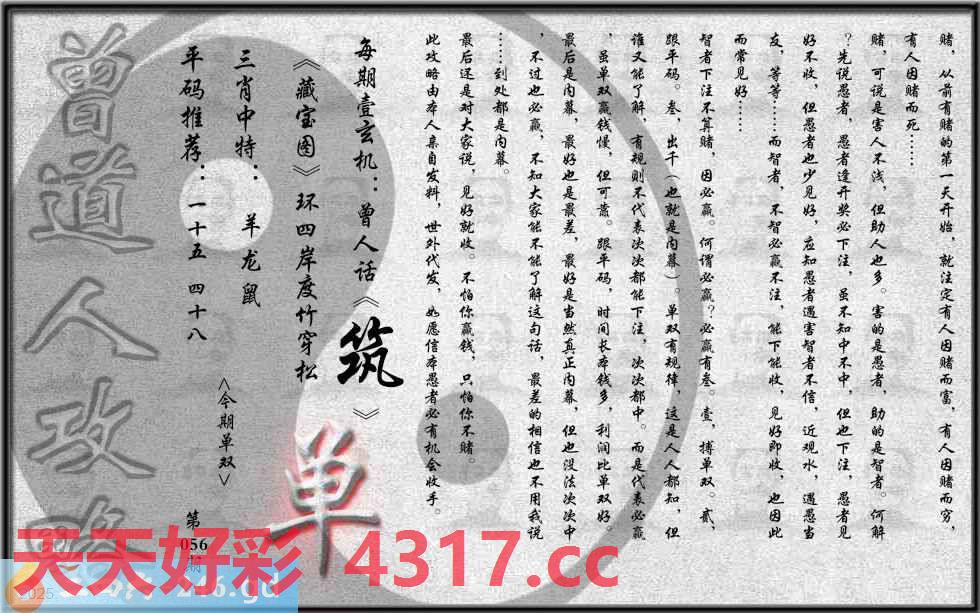 赌，从前有赌的第一天开始，就注定有人因赌而富，有人因赌而穷，
有人因赌而死……
赌，可说是害人不浅，但助人也多。害的是愚者，助的是智者。何解
？先说愚者，愚者逢开奖必下注，虽不知中不中，但也下注，愚者见
好不收，但愚者也少见好，应知愚者遇害智者不信，近观水，遇愚当
友，等等……而智者，不智必赢不注，能下能收，见好即收，也因此
而常见好……
智者下注不算赌，因必赢。何谓必赢？必赢有叁。壹，搏单双。贰，
跟平码。叁，出千（也就是内幕）。单双有规律，这是人人都知，但
谁又能了解，有规则不代表次次都能下注，次次都中。而是代表必赢
，虽单双赢钱慢，但可靠。跟平码，时间长本钱多，利润比单双好。
最后是内幕，最好也是最差，最好是当然真正内幕，但也没法次次中
，不过也必赢，不知大家能不能了解这句话，最差的相信也不用我说
……到处都是内幕。
最后还是对大家说，见好就收。不怕你赢钱，只怕你不赌。
此攻略由本人亲自发料，世外代发，如愿信本愚者必有机会收手。
每期壹玄机：曾人话《筑》
《藏宝图》环四岸度竹穿松
三肖中特：羊龙鼠
平码推荐：一十五 四十八
<今期单双>
单
第056期
曾道人攻略
天天好彩 4317.cc
2025
246.gd